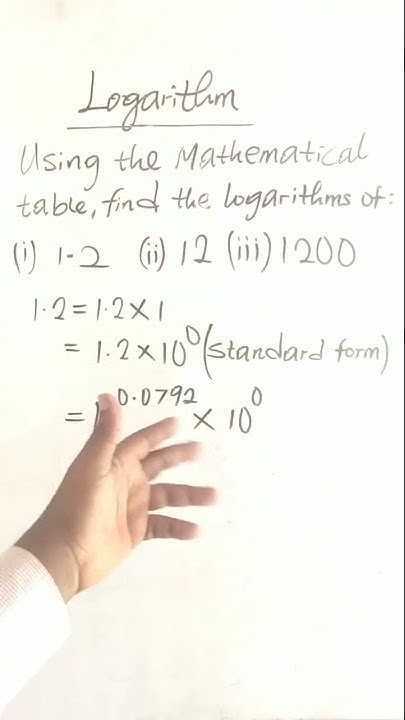 Logarithm
Using the Mathematical
table, find the logarithms of:
(i) 1.2 (ii) 12 (iii) 1200
1.2 = 1.2 × 1
= 1.2 × 10⁰ (standard form)
= 1 ⁰·⁰⁷⁹² × 10⁰